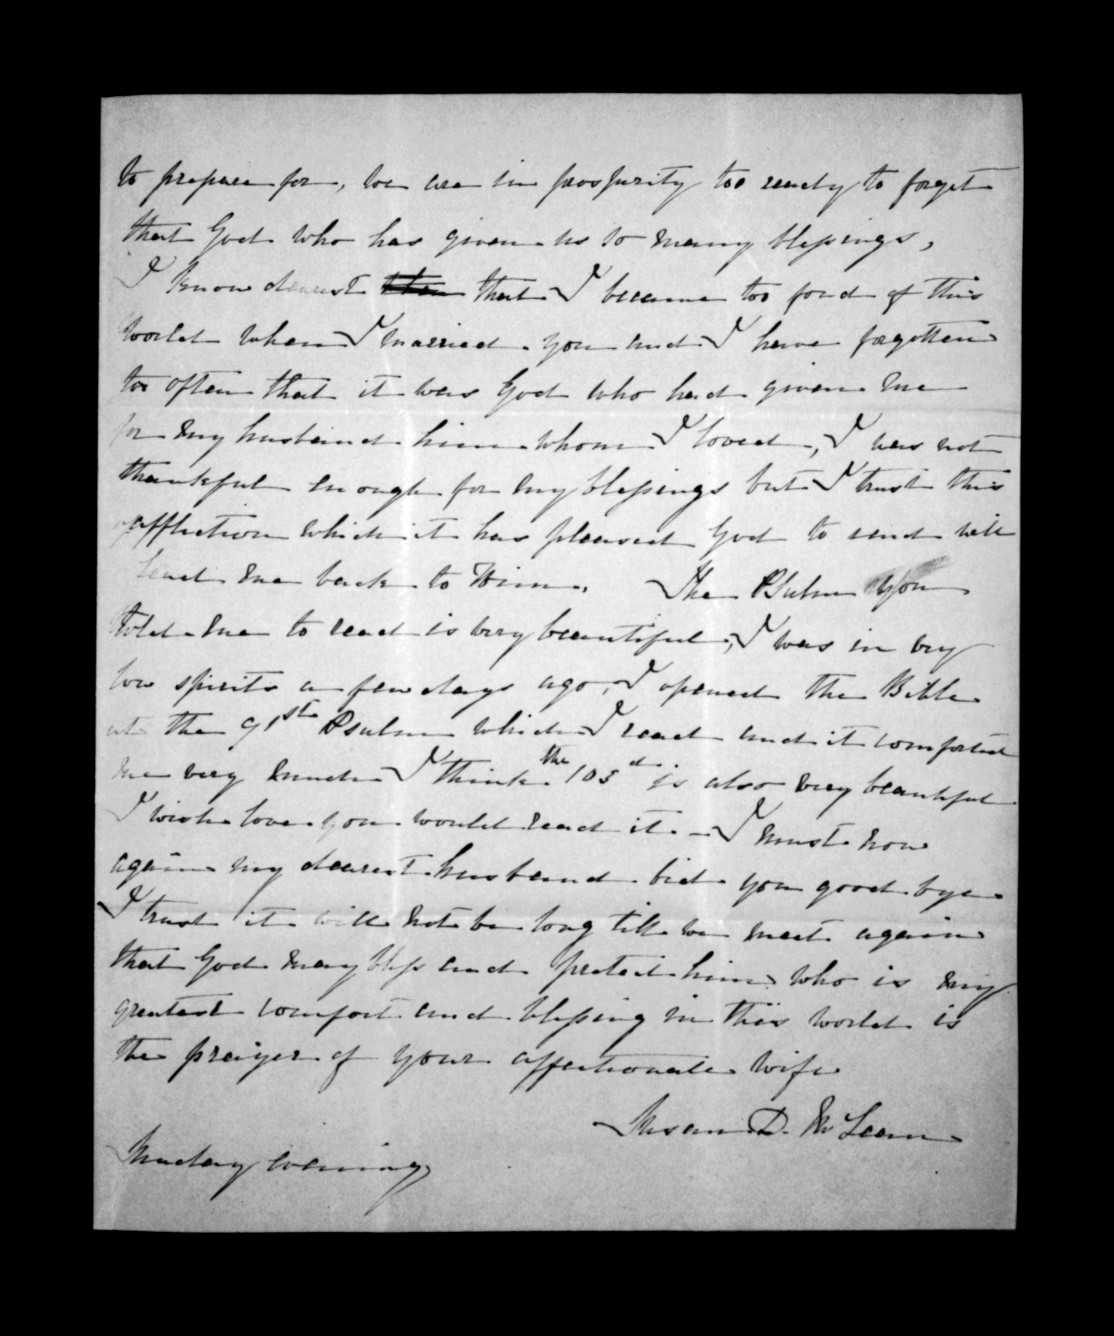 to prepare for, we are in prosperity too ready to forget
that God who has given us so many blessings,
I know dearest then that I became too fond of this
world when I married you and I have forgotten
too often that it was God who had given me
for my husband him whom I loved, I was not
thankful enough for my blessings but I trust this
affliction which it has pleased God to send will
lead me back to Him. The Psalm you
told me to read is very beautiful, I was in very
low spirits a few days ago, I opened the Bible
at the 91st Psalm which I read and it comforted
me very much I think the 103d is also very beautiful
I wish love you would read it. - I must now
again my dearest husband bid you good bye
I trust it will not be long till we meet again
that God may bless and protect him who is my
greatest comfort and blessing in this world is
the prayer of your affectionate wife
Susan D. McLean
Sunday evening